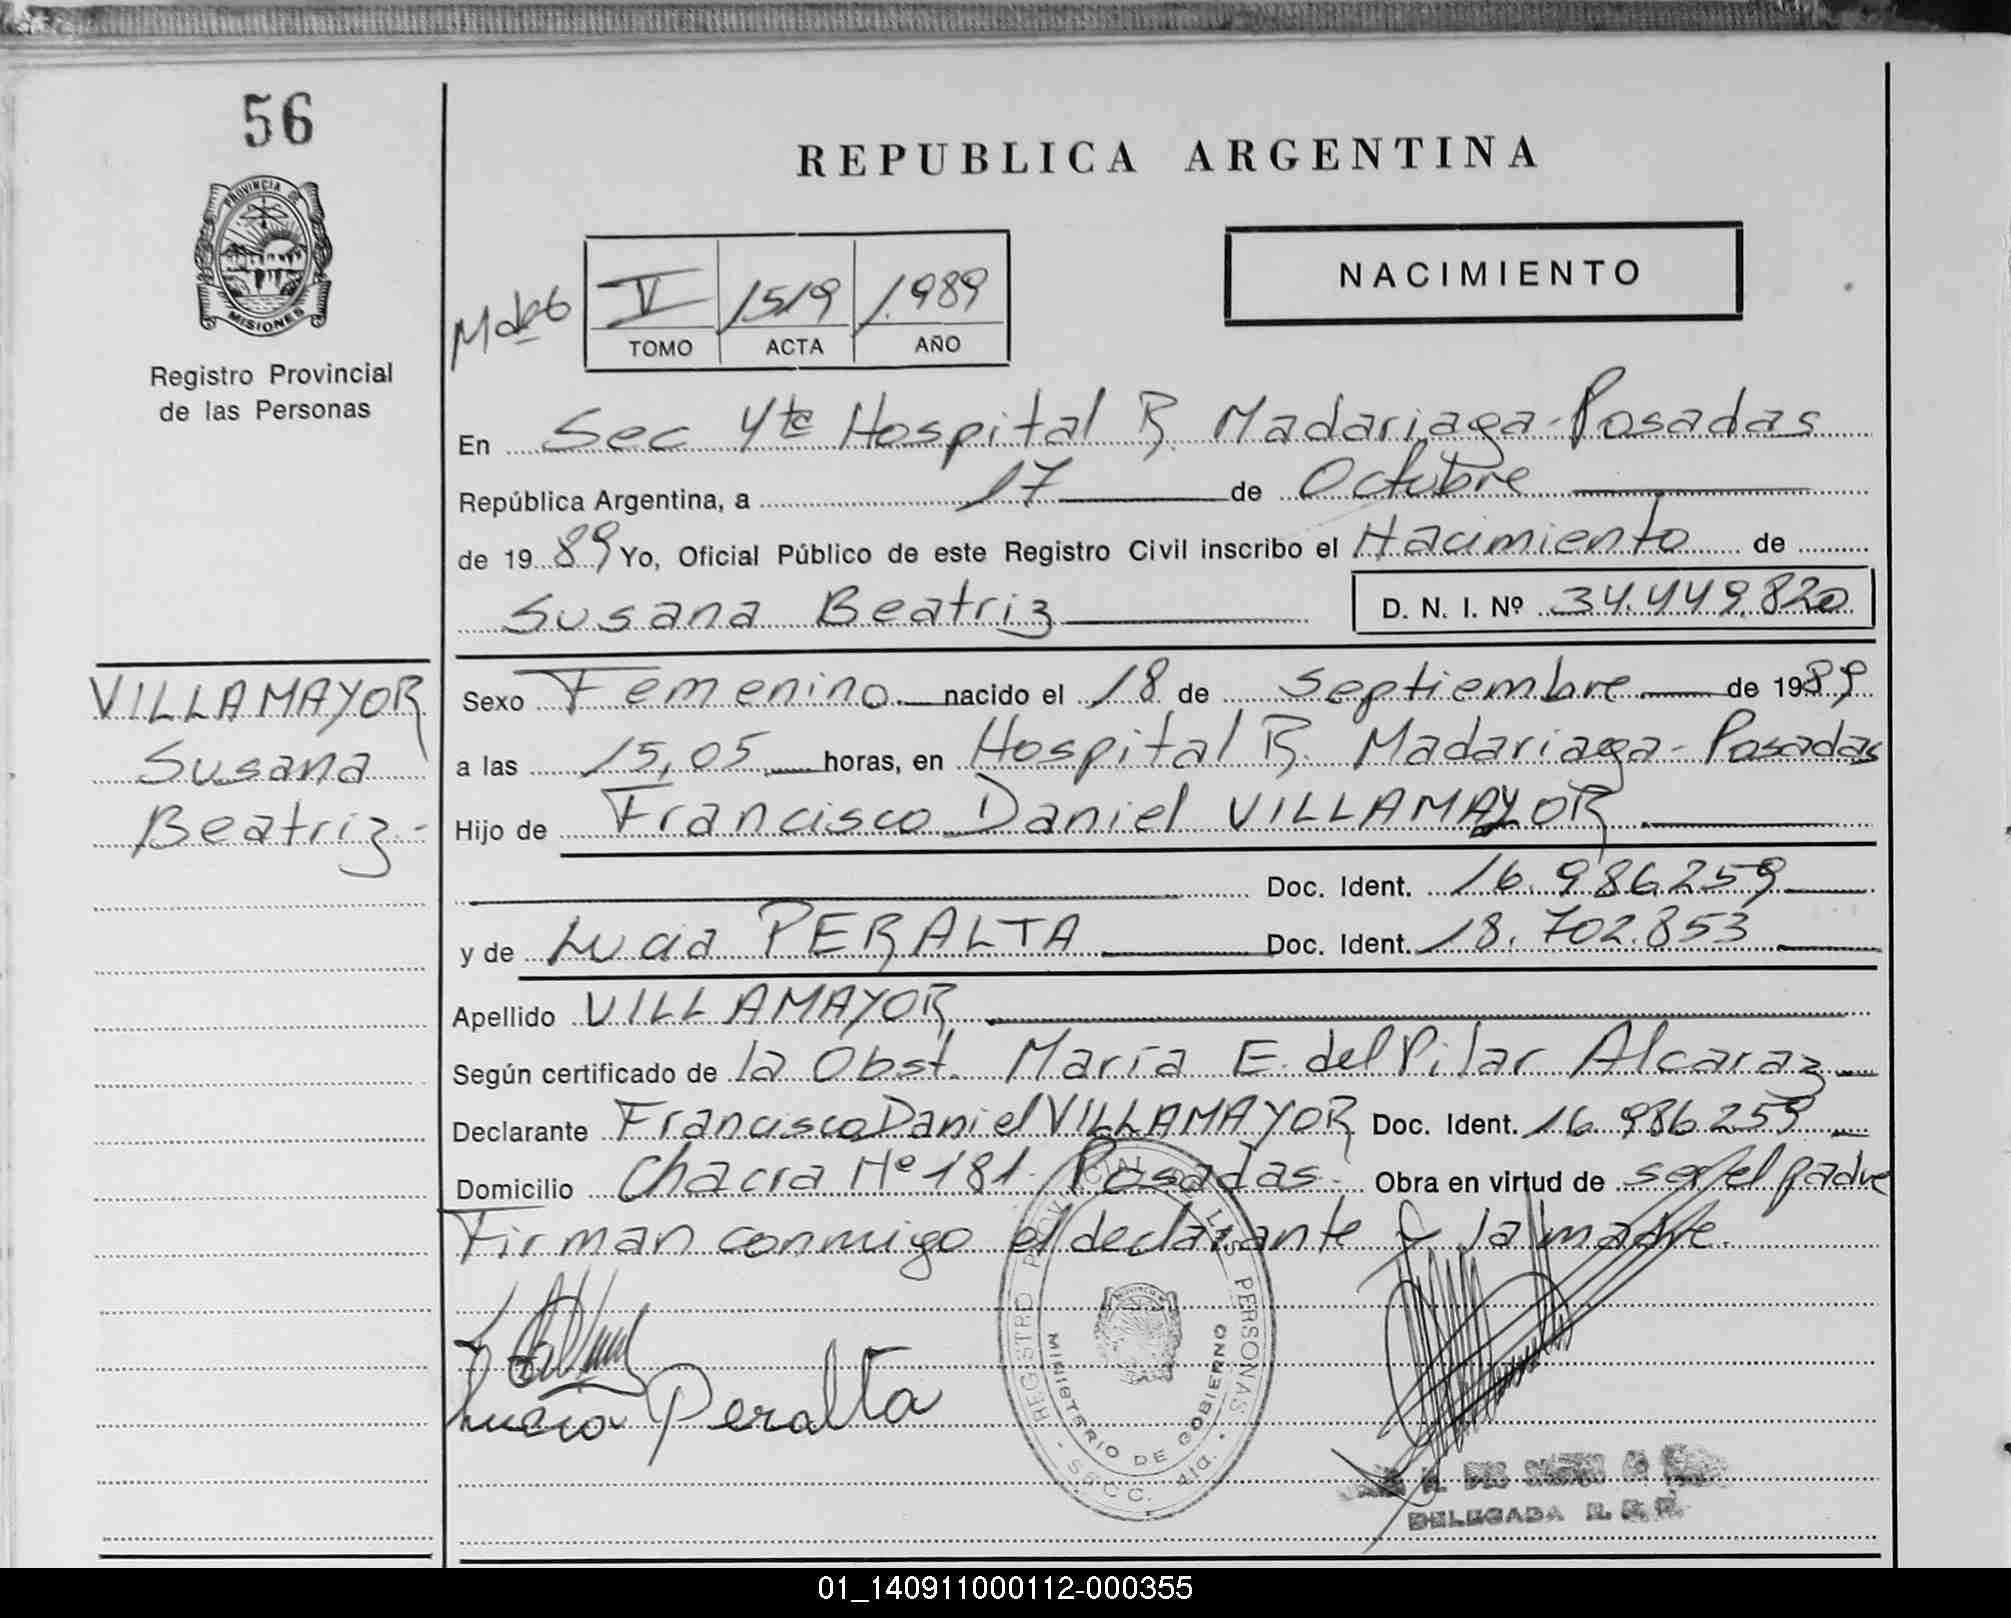 56
PROVINCIA DE
MISIONES
Registro Provincial
de las Personas
REPUBLICA ARGENTINA
NACIMIENTO
V 1519 1.989
TOMO ACTA AÑO
En Sec 4ta Hospital R. Madariaga - Posadas
República Argentina, a 17 de Octubre
de 1989 Yo, Oficial Público de este Registro Civil inscribo el Nacimiento de
Susana Beatriz D. N. I. Nº 34.449.820
VILLAMAYOR
Susana
Beatriz.-
Sexo Femenino nacido el 18 de Septiembre de 1989
a las 15,05 horas, en Hospital R. Madariaga - Posadas
Hijo de Francisco Daniel VILLAMAYOR
Doc. Ident. 16.986.259
y de Lucia PERALTA Doc. Ident. 18.702.853
Apellido VILLAMAYOR
Según certificado de la Obst. María E. del Pilar Alcaraz
Declarante Francisco Daniel VILLAMAYOR Doc. Ident. 16.986.259
Domicilio Chacra Nº 181. Posadas. Obra en virtud de ser el padre
Firman conmigo el declarante y la madre.
Lucia Peralta
REGISTRO PROVINCIAL DE LAS PERSONAS
MINISTERIO DE GOBIERNO
SECC. 4ta.
DELEGADA R. P. P.
01_140911000112-000355